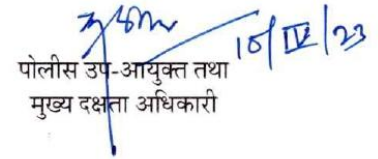 10/IV/23
पोलीस उप-आयुक्त तथा
मुख्य दक्षता अधिकारी